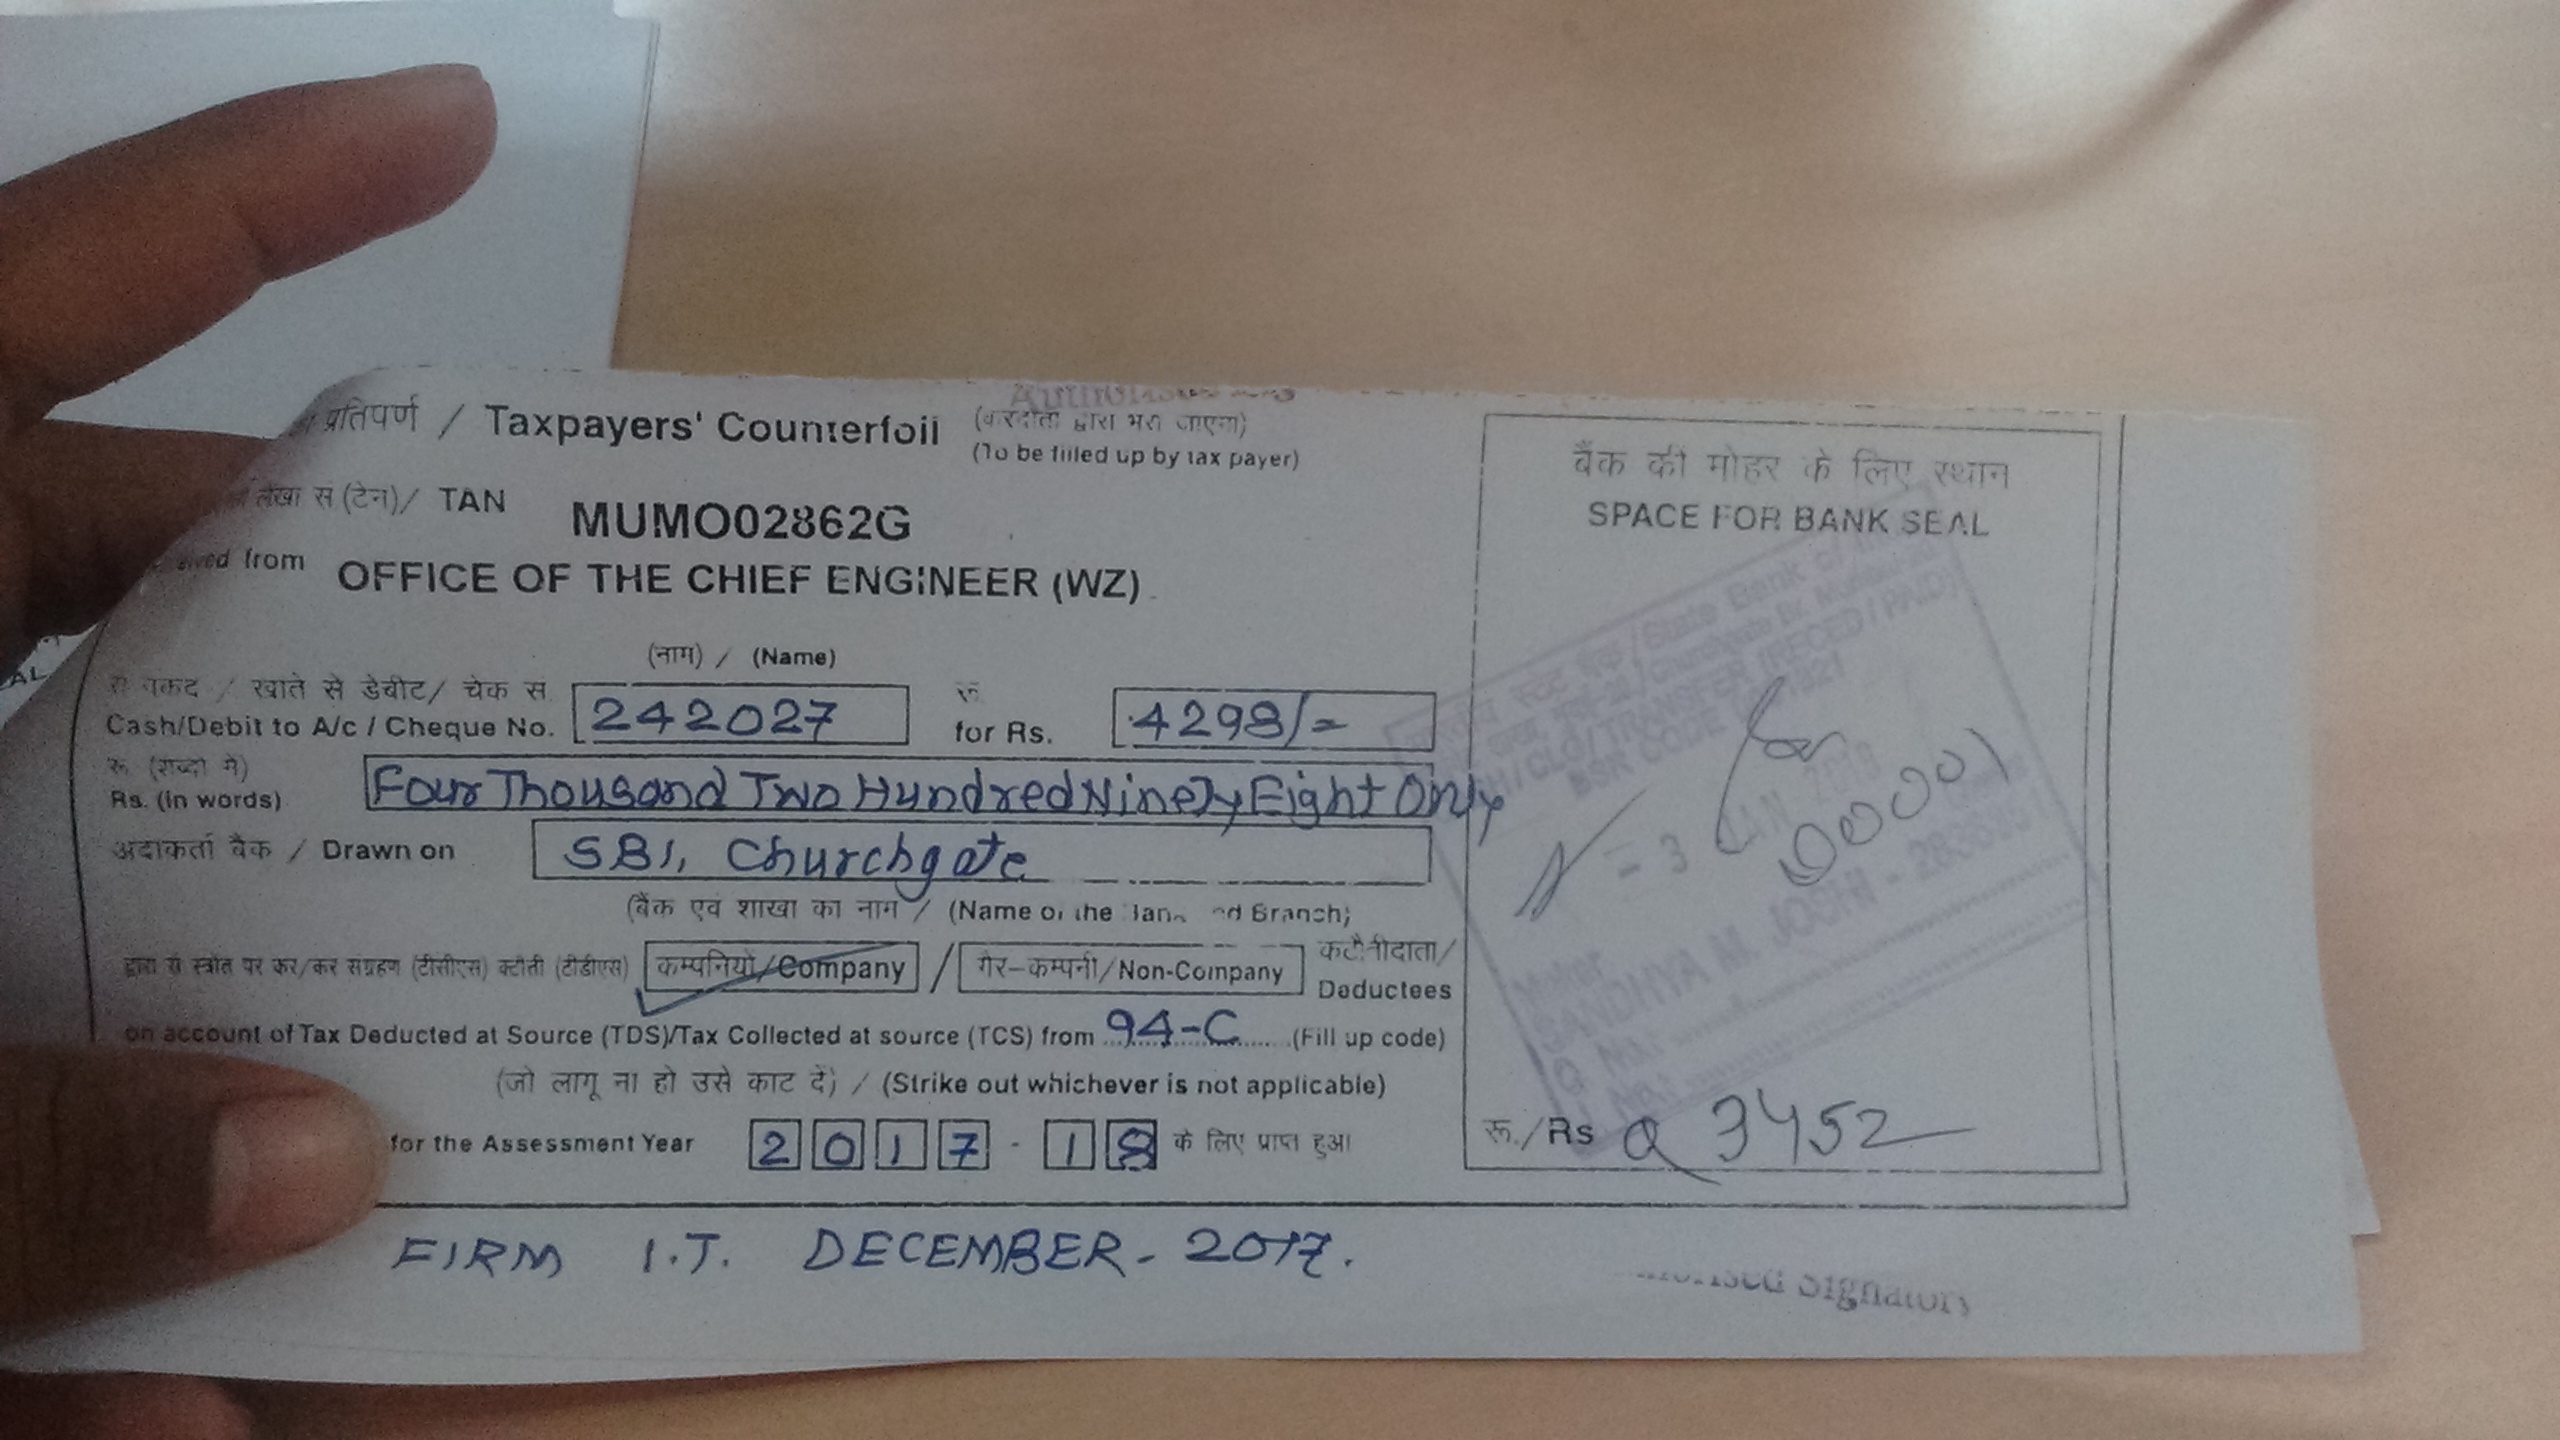 प्रतिपर्ण / Taxpayers' Counterfoil (करदाता द्वारा भरा जाएगा)
(To be filled up by tax payer)
लेखा सं (टेन)/ TAN MUMO02862G
from OFFICE OF THE CHIEF ENGINEER (WZ)
(नाम) / (Name)
नकद / खाते से डेबीट/ चेक स
Cash/Debit to A/c / Cheque No. 242027 रू for Rs. 4298/=
रू (शब्दों में)
Rs. (in words) Four Thousand Two Hundred Ninety Eight Only
अदाकर्ता बैंक / Drawn on SBI, Churchgate
(बैंक एवं शाखा का नाम / (Name of the Bank and Branch)
द्वारा से स्त्रोत पर कर/कर संग्रहण (टीसीएस) कटौती (टीडीएस) कम्पनियों/Company / गैर-कम्पनी/Non-Company कटौतीदाता/
Deductees
on account of Tax Deducted at Source (TDS)/Tax Collected at source (TCS) from 94-C (Fill up code)
(जो लागू ना हो उसे काट दें) / (Strike out whichever is not applicable)
for the Assessment Year 2017-18 के लिए प्राप्त हुआ
FIRM I.T. DECEMBER - 2017.
बैंक की मोहर के लिए स्थान
SPACE FOR BANK SEAL
State Bank of
TRANSFER (RECED / PAID)
BSR CODE
- 3 JAN
00001
SANDHYA M. JOSHI -
रू./Rs Q 3452
Signatory